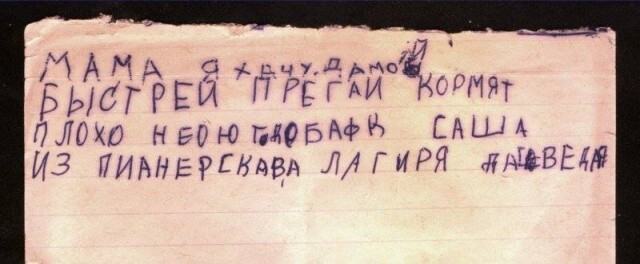 МАМА Я ХАЧУ.ДАМОЙ
БЫСТРЕЙ ПРЕГАЙ КОРМЯТ
ПЛОХО САША
ИЗ ПИАНЕРСКАВА ЛАГИРЯ